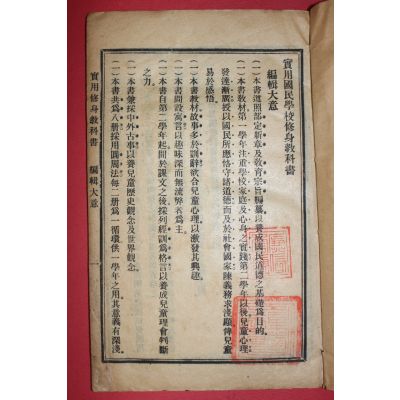 實用國民學校修身教科書
編輯大意
(一)本書遵照部定新章及教育宗旨編纂以養成國民道德之基礎爲目的
(一)本書教材第一學年注重學校家庭及心身之實踐第二學年以後兒童心理
發達漸廣授以國民所應恪守諸道德而及於社會國家陳義務求淺顯俾兒童
易於感悟
(一)本書教材故事多於訓辭欲合兒童心理以激發其興趣
(一)本書間設寓言以趣味深而無流弊者爲主
(一)本書自第二學年起間於課文之後採列經訓爲格言以養成兒童理會判斷
之力
(一)本書兼採中外古事以養兒童歷史觀念及世界觀念
(一)本書共爲八册採用圓周法每二册爲一循環供一學年之用其意義有深淺
實用修身教科書 編輯大意 一